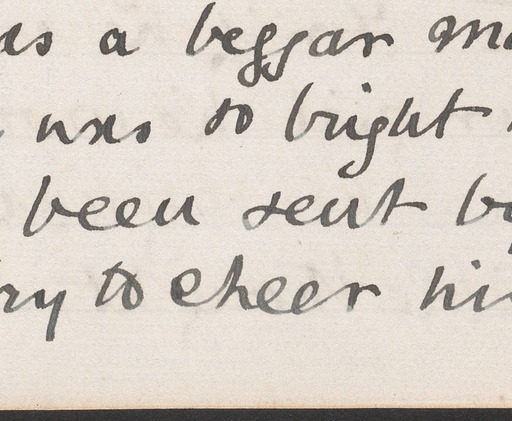 as a beggar ma
was so bright
been sent by
ry to cheer hi